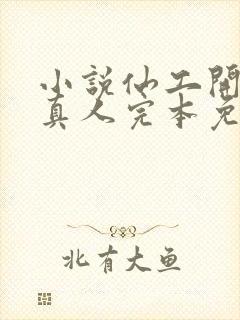 小説仙工開
真人完本免
北有大鱼